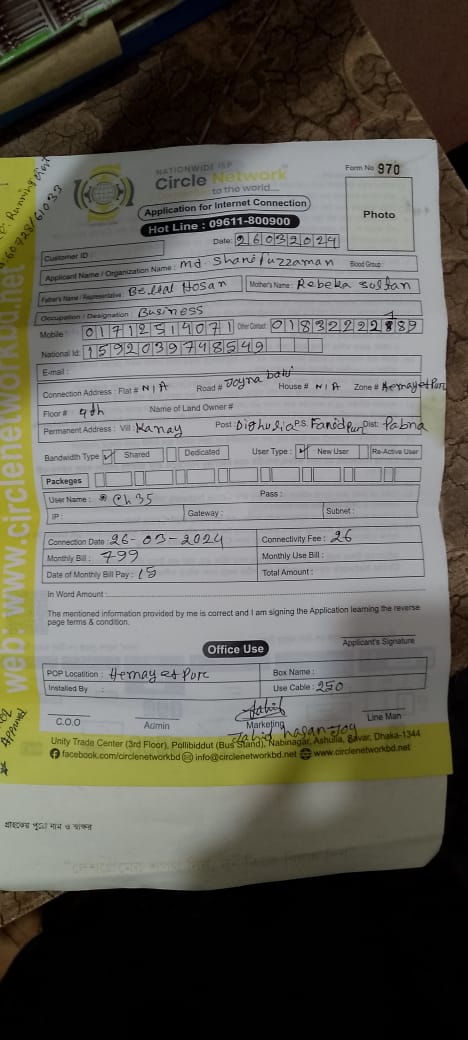 NATIONWIDE ISP
Circle Network
to the world....
Form No 970
Application for Internet Connection
Hot Line : 09611-800900
Photo
Date: 26032024
Customer ID :
Applicant Name / Organization Name : md. Sharifuzzaman Blood Group :
Father's Name / Representative : Bellal Hosan Mother's Name : Rabeka Sultan
Occupation / Designation : Business
Mobile : 01712514071 Other Contact :
National Id: 1592039748549
E-mail :
Connection Address : Flat # N/A Road # Joyna bari House # N/A Zone # Hemayetpur
Floor # 4th Name of Land Owner#
Permanent Address : Vill : Kanay Post : Dighulia P.S. Faridpur Dist: Pabna
Bandwidth Type Shared Dedicated User Type : New User Re-Active User
Packeges
User Name : Ch35 Pass :
IP : Gateway : Subnet :
Connection Date : 26-03-2024 Connectivity Fee : 26
Monthly Bill : 799 Monthly Use Bill :
Date of Monthly Bill Pay : 15 Total Amount :
In Word Amount :
The mentioned information provided by me is correct and I am signing the Application learning the reverse
page terms & condition.
Applicant's Signature
Office Use
POP Locatition : Hemayetpur Box Name :
Installed By : Use Cable : 250
C.O.O Admin Marketing Line Man
Jahid hasan Joy
Unity Trade Center (3rd Floor), Pollibiddut (Bus Stand), Nabinagar, Ashulia, Savar, Dhaka-1344
facebook.com/circlenetworkbd info@circlenetworkbd.net www.circlenetworkbd.net
web: www.circlenetworkbd.net
Approved
গ্রাহকের পুরো নাম ও স্বাক্ষর